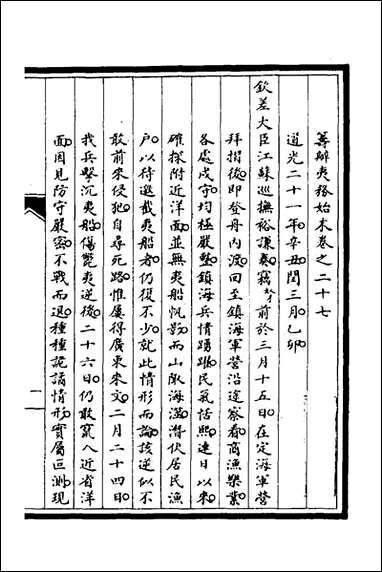 籌辦夷務始末卷之二十七
道光二十一年辛丑閏三月乙卯
欽差大臣江蘇巡撫裕謙奏竊奴才前於三月十五日在定海軍營
拜摺後即登舟內渡回至鎮海軍營沿途察看商漁樂業
各處戍守均極嚴整鎮海兵情踴躍民氣恬熙連日以來
確探附近洋面並無夷船帆影而山陬海澨潛伏居民漁
戶以待邀截夷船者仍復不少就此情形而論該逆似不
敢前來侵犯自尋死路惟廣得廣東來文二月二十四日
我兵擊沉夷船傷斃夷逆後二十六日仍敢竄入近省洋
面因見防守嚴密不戰而退種種詭譎情形實屬叵測現
一